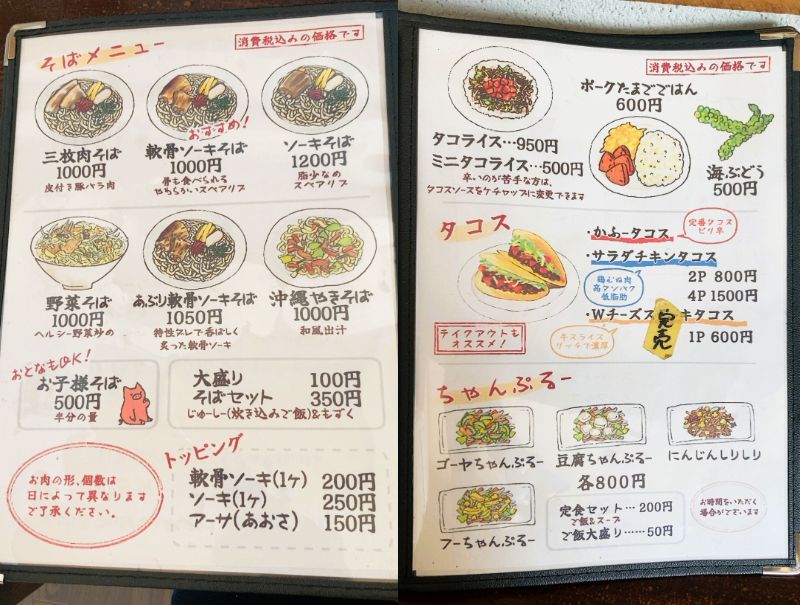 そばメニュー
消費税込みの価格です
三枚肉そば
1000円
皮付き豚バラ肉
おすすめ!
軟骨ソーキそば
1000円
骨も食べられる
やわらかいスペアリブ
ソーキそば
1200円
脂少なめ
スペアリブ
野菜そば
1000円
ヘルシー野菜炒め
あぶり軟骨ソーキそば
1050円
特性ダレで香ばしく
炙った軟骨ソーキ
沖縄やきそば
1000円
和風出汁
おとなもOK!
お子様そば
500円
半分の量
大盛り 100円
そばセット 350円
じゅーしー(炊き込みご飯)&もずく
お肉の形、個数は
日によって異なります
ご了承ください。
トッピング
軟骨ソーキ(1ヶ) 200円
ソーキ(1ヶ) 250円
アーサ(あおさ) 150円
消費税込みの価格です
タコライス…950円
ミニタコライス…500円
辛いのが苦手な方は、
タコスソースをケチャップに変更できます
ポークたまごごはん
600円
海ぶどう
500円
タコス
・かふータコス
定番タコス
ピリ辛
・サラダチキンタコス
鶏むね肉
高タンパク
低脂肪
2P 800円
4P 1500円
・Wチーズス
キタコス
完売
キスライス
リッチで濃厚
1P 600円
テイクアウトも
オススメ!
ちゃんぷるー
ゴーヤちゃんぷるー
豆腐ちゃんぷるー
にんじんしりしり
各800円
フーちゃんぷるー
定食セット…200円
ご飯&スープ
ご飯大盛り……50円
お時間をいただく
場合がございます